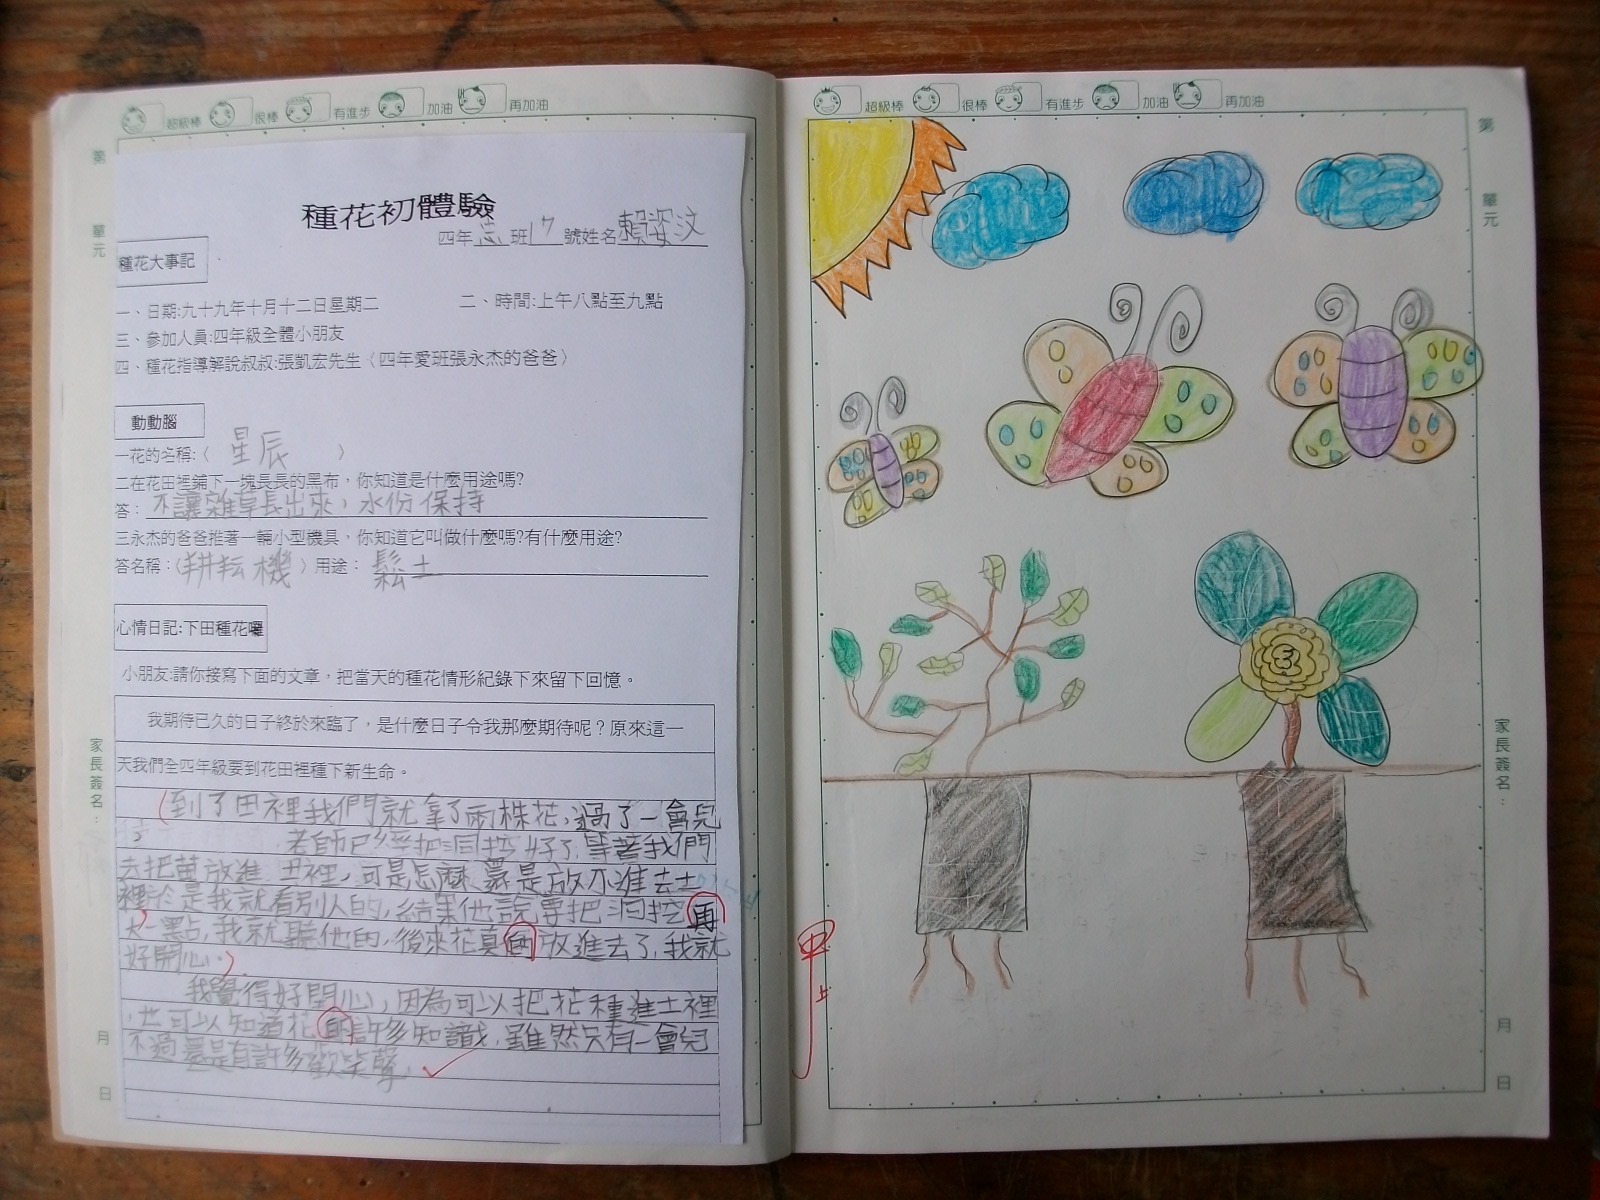 超級棒 很棒 有進步 加油 再加油
第 單元
種花初體驗
四年忠班17號姓名賴姿汶
種花大事記
一、日期:九十九年十月十二日星期二 二、時間:上午八點至九點
三、參加人員:四年級全體小朋友
四、種花指導解說叔叔:張凱宏先生〈四年愛班張永杰的爸爸〉
動動腦
一花的名稱:〈 星辰 〉
二在花田裡鋪下一塊長長的黑布,你知道是什麼用途嗎?
答: 不讓雜草長出來,水份保持
三永杰的爸爸推著一輛小型機具,你知道它叫做什麼嗎?有什麼用途?
答名稱:〈耕耘機〉用途: 鬆土
心情日記:下田種花囉
小朋友:請你接寫下面的文章,把當天的種花情形紀錄下來留下回憶。
我期待已久的日子終於來臨了,是什麼日子令我那麼期待呢?原來這一
天我們全四年級要到花田裡種下新生命。
到了田裡我們就拿了兩株花,過了一會兒
老師已經把洞挖好了,等著我們
去把苗放進 裡,可是怎麼還是放不進去土
裡於是我就看別人的,結果他說要把洞挖再
大一點,我就聽他的,後來花真的放進去了,我就
好開心。
我覺得好開心,因為可以把花種進土裡
,也可以知道花的許多知識,雖然只有一會兒
不過還是有許多歡笑聲。
家長簽名:
月 日
超級棒 很棒 有進步 加油 再加油
第 單元
甲上
家長簽名:
月 日